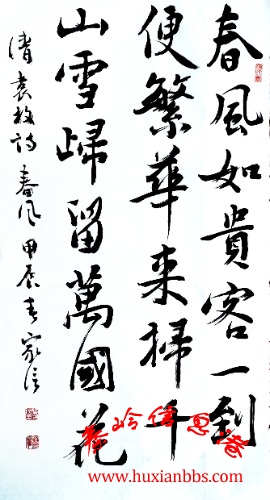 春風如貴客一到
便繁華来掃千
山雪歸留萬國花
清袁枚诗春风甲辰春家信
www.huxianbbs.com